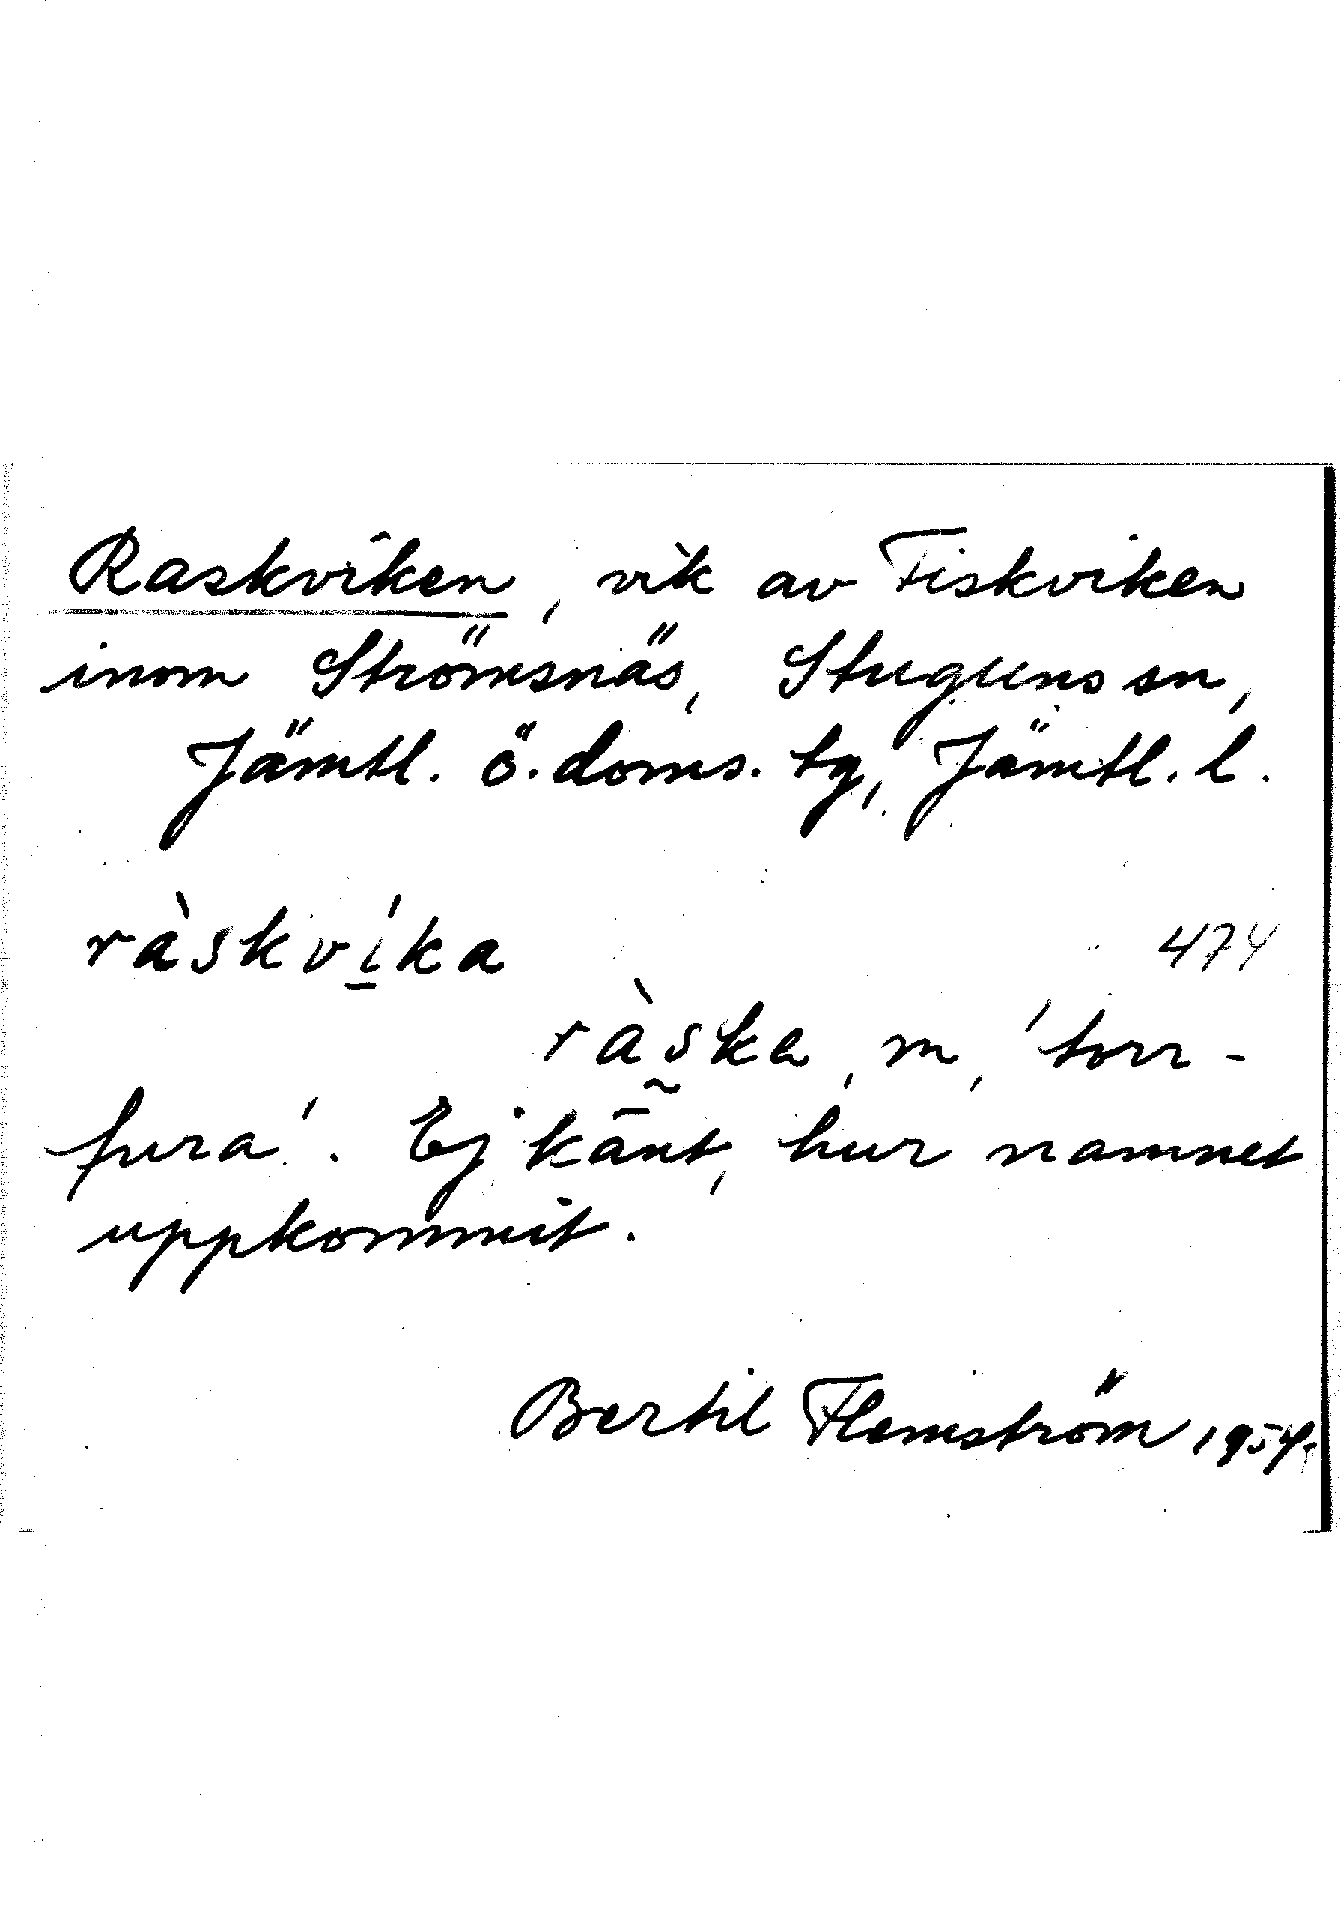 Raskviken, vik av Fiskviken
inom Strömsnäs, Stuguns sn,
Jämtl. ö. doms. tg, Jämtl. l.
ràskví̠ka
474
ràska, m, 'torr-
fura'. Ej känt, hur namnet
uppkommit.
Bertil Flemström 1954.